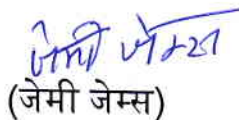 जेमी जेम्स
(जेमी जेम्स)